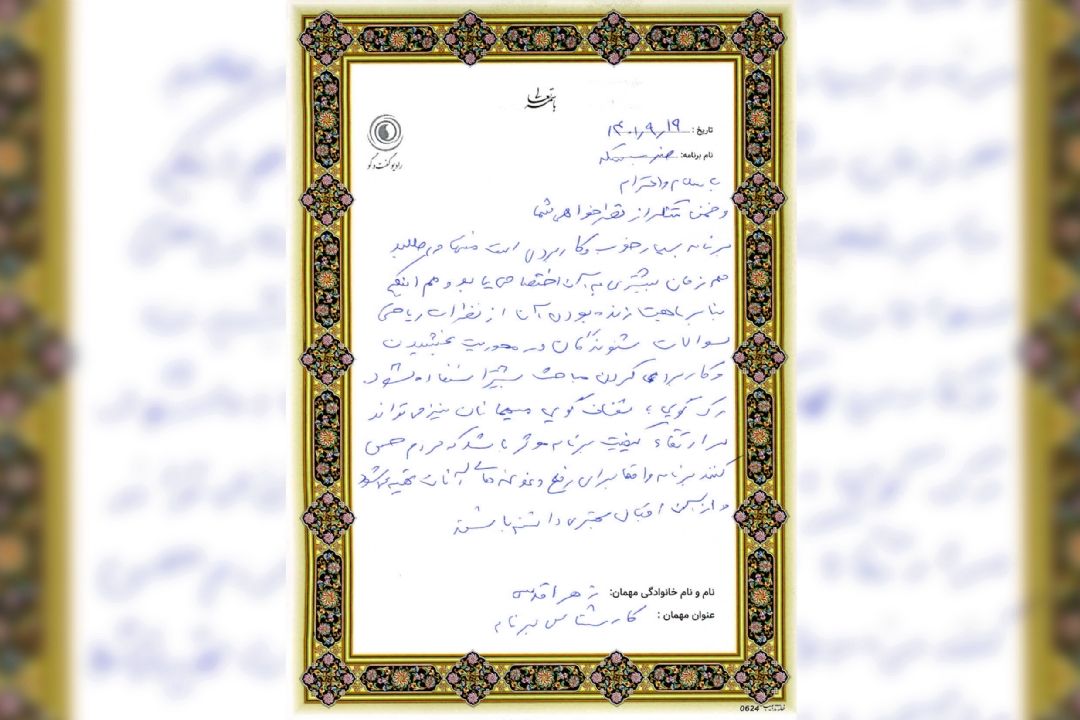 باسمه تعالی
رادیو گفت و گو
تاریخ: ۱۴۰۱/۹/۱۹
نام برنامه:
با سلام و احترام
و ضمن تشکر از نظرخواهی شما
برنامه بسیار خوب و کاربردی است منتها می‌طلبد
هم زمان بیشتری به آن اختصاص یابد و هم اینکه
بنابر ماهیت زنده بودن آن از نظرات
سوالات شنوندگان در محوریت بخشیدن
و کاربردی کردن مباحث بیشتر استفاده شود.
رک گویی، شفاف گویی میهمانان نیز می‌تواند
در ارتقاء کیفیت برنامه موثر باشد که مردم حس
کنند برنامه واقعا برای رفع دغدغه‌های آنان تهیه می‌شود
و از آن اقبال بیشتری داشته باشند
نام و نام خانوادگی مهمان: زهرا اقدسی
عنوان مهمان: کارشناس برنامه
0624